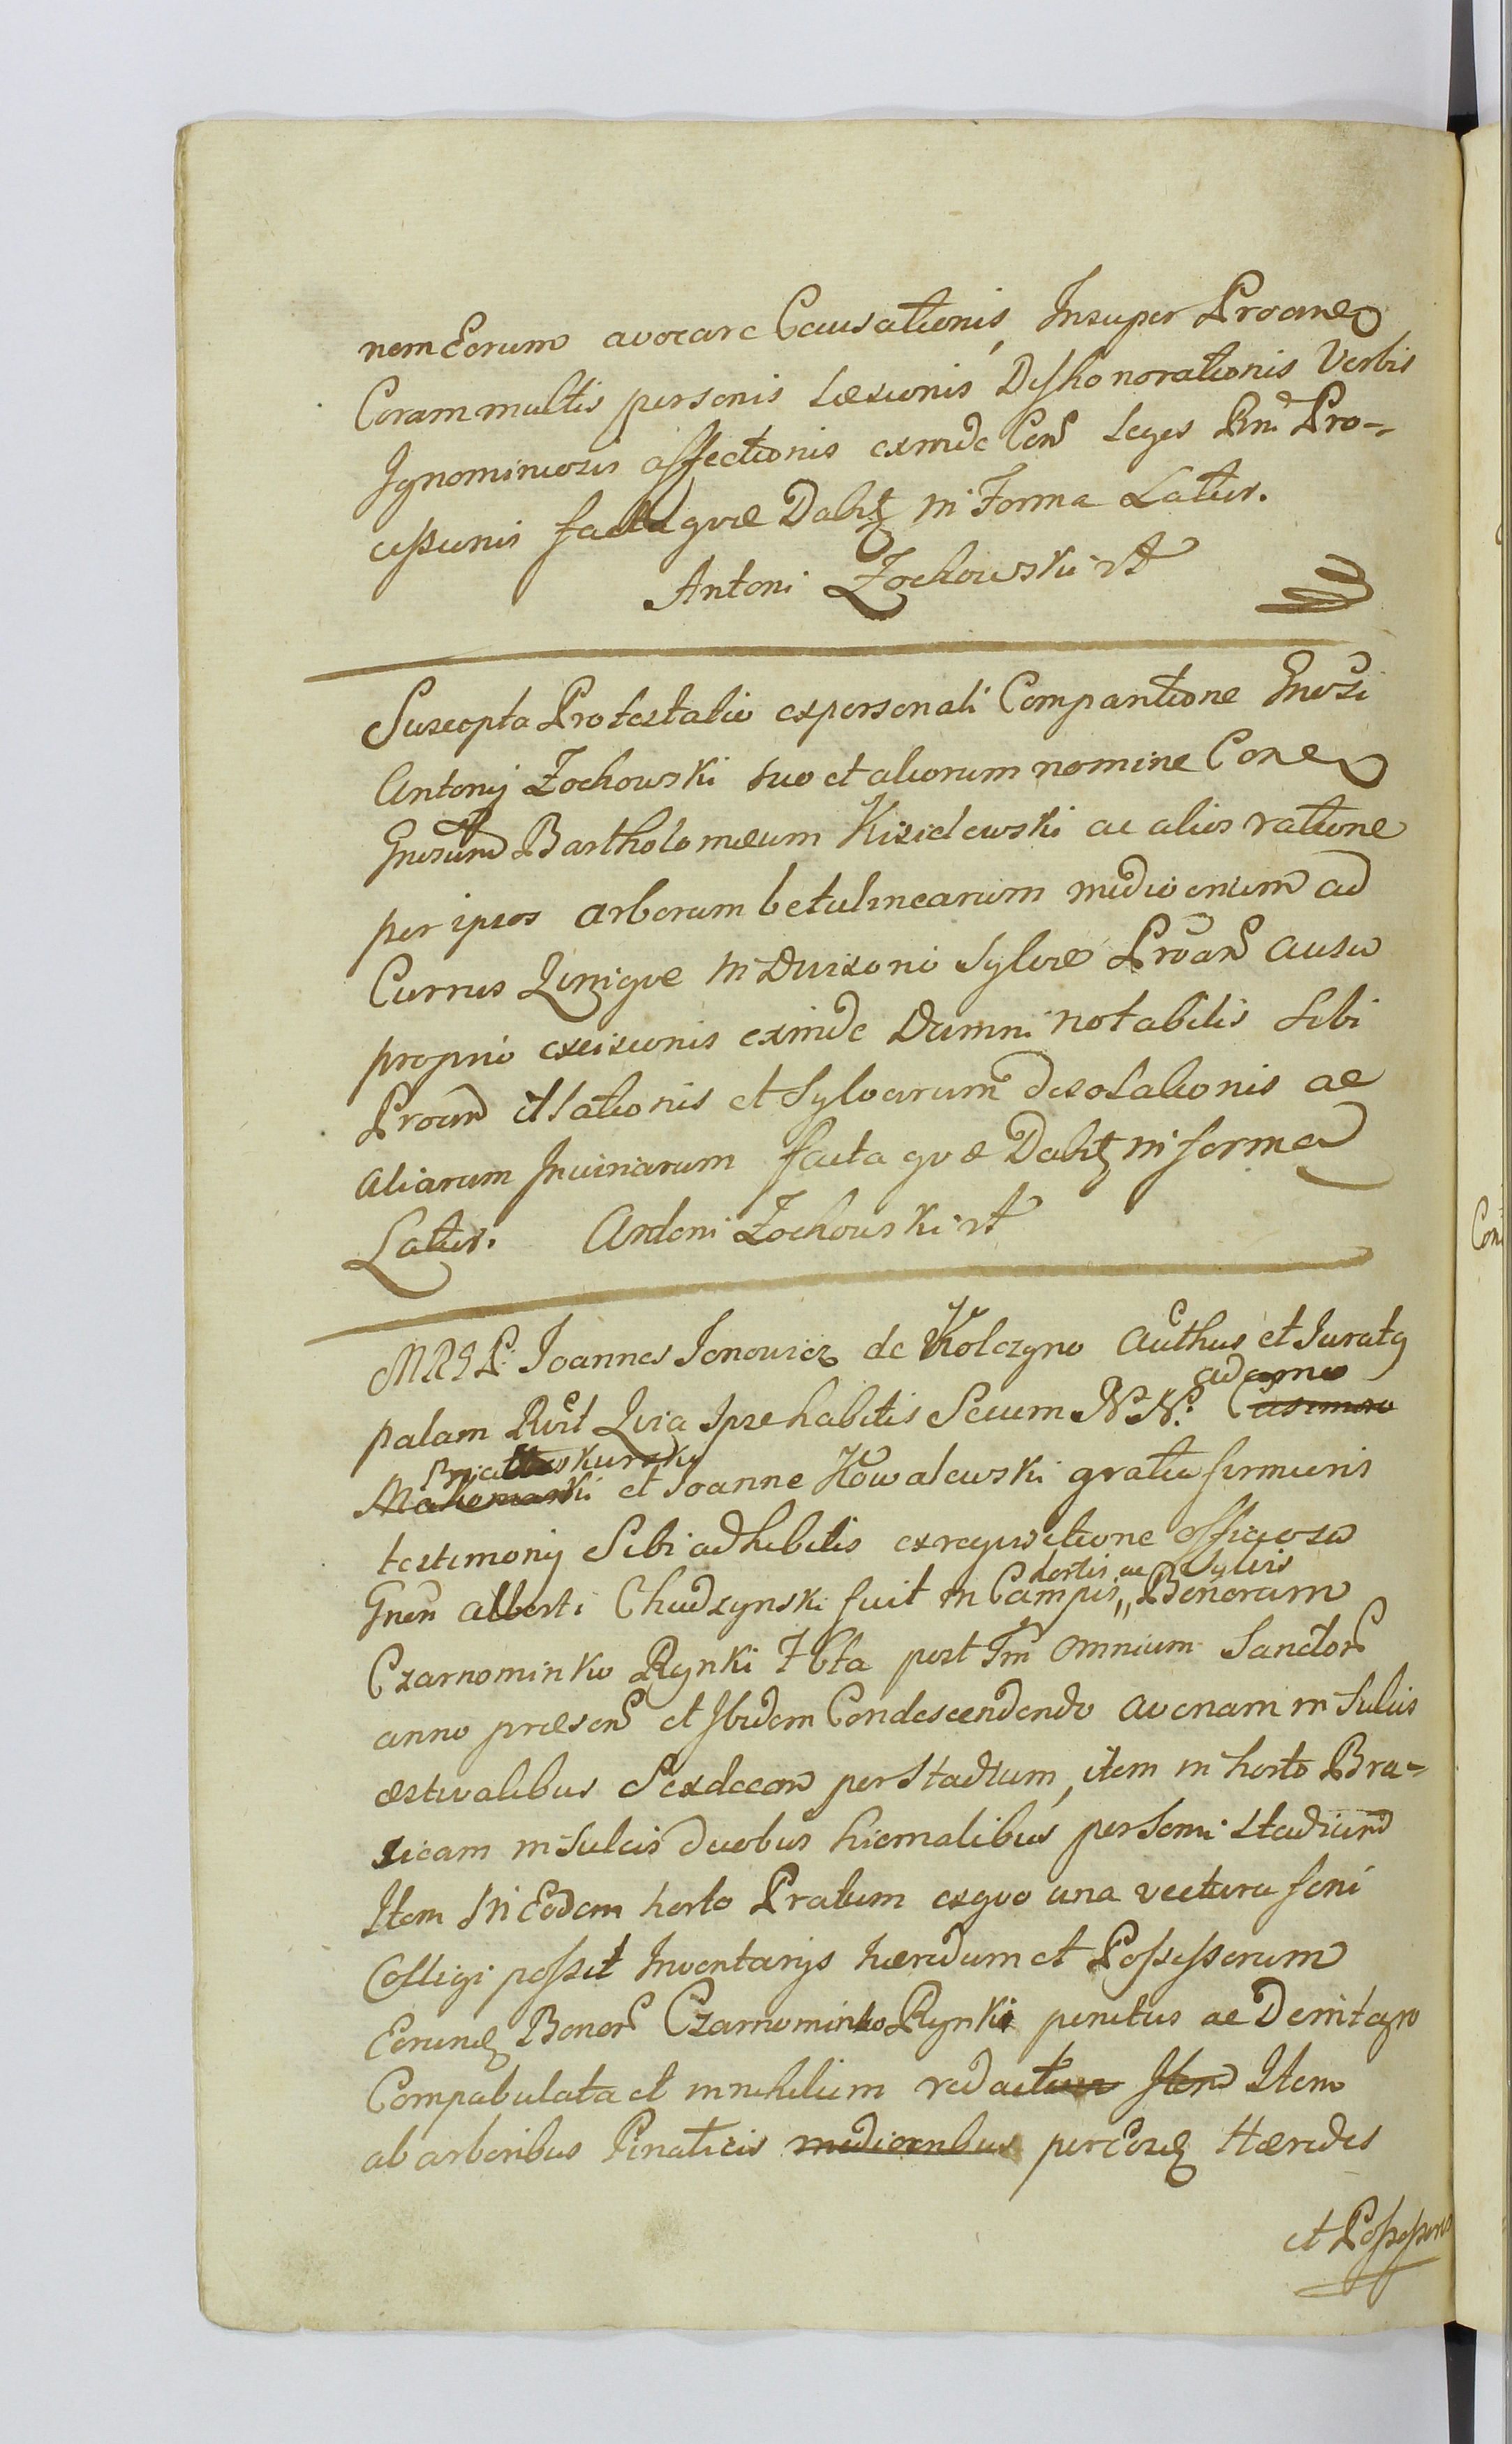 nem Eorum avocare Causationis, Insuper Proane
Coram multis personis Læsionis Dishonorationis Verbis
Ignominiosis affectionis exinde Con Leges Rni Pro-
cessionis facta qvæ Dabit in Forma Latius.
Antoni Żochowski
Suscepta Protestatio ex personali Comparitione Gnosi
Antonij Żochowski suo et aliorum nomine Cone
Gnosum Bartholomæum Kisielewski ac alios ratione
per ipsos arborum betulinearum mediocrium ad
Currus Qinqve in Divisono Sylvæ Proan ausu
proprio excisionis exinde Damni notabilis Sibi
Proan illationis et Sylvarum desolationis ac
aliarum Iniuriarum facta qvæ Dabit in forma
Latius. Antoni Żochowski
MRGL Joannes Jonowicz de Kolczyno Authus et Juratq
adamo
palam Rvit Qvia Ipse habitis Secum NN. Casimiro
et Joanne Kowalewski gratia firmioris
testimonij Sibi adhibitis ex reqvisitione officiosa
hortis ac Sylvis
Gnen alberti Chudzynski fuit in Campis,, Bonorum
Czarnominko Rynki Fbta post Fm Omnium Sanctor
anno præsen et Ibidem Condescendendo avenam in Sulcis
æstivalibus Sexdecem per Stadium, item in horto Bra-
sicam in Sulcis duobus hiemalibus per Semi Stadium
Item in Eodem horto Pratum ex qvo una vectura feni
Colligi possit Inventarijs hæredum et Possessorum
Eorund Bonor Czarnominko Rynki penitus ac Denitq
Compabulata et in nihilium redactum Item Item
ab arboribus Pinaticis mediocribus per Eosd Hæredes
et Possessores